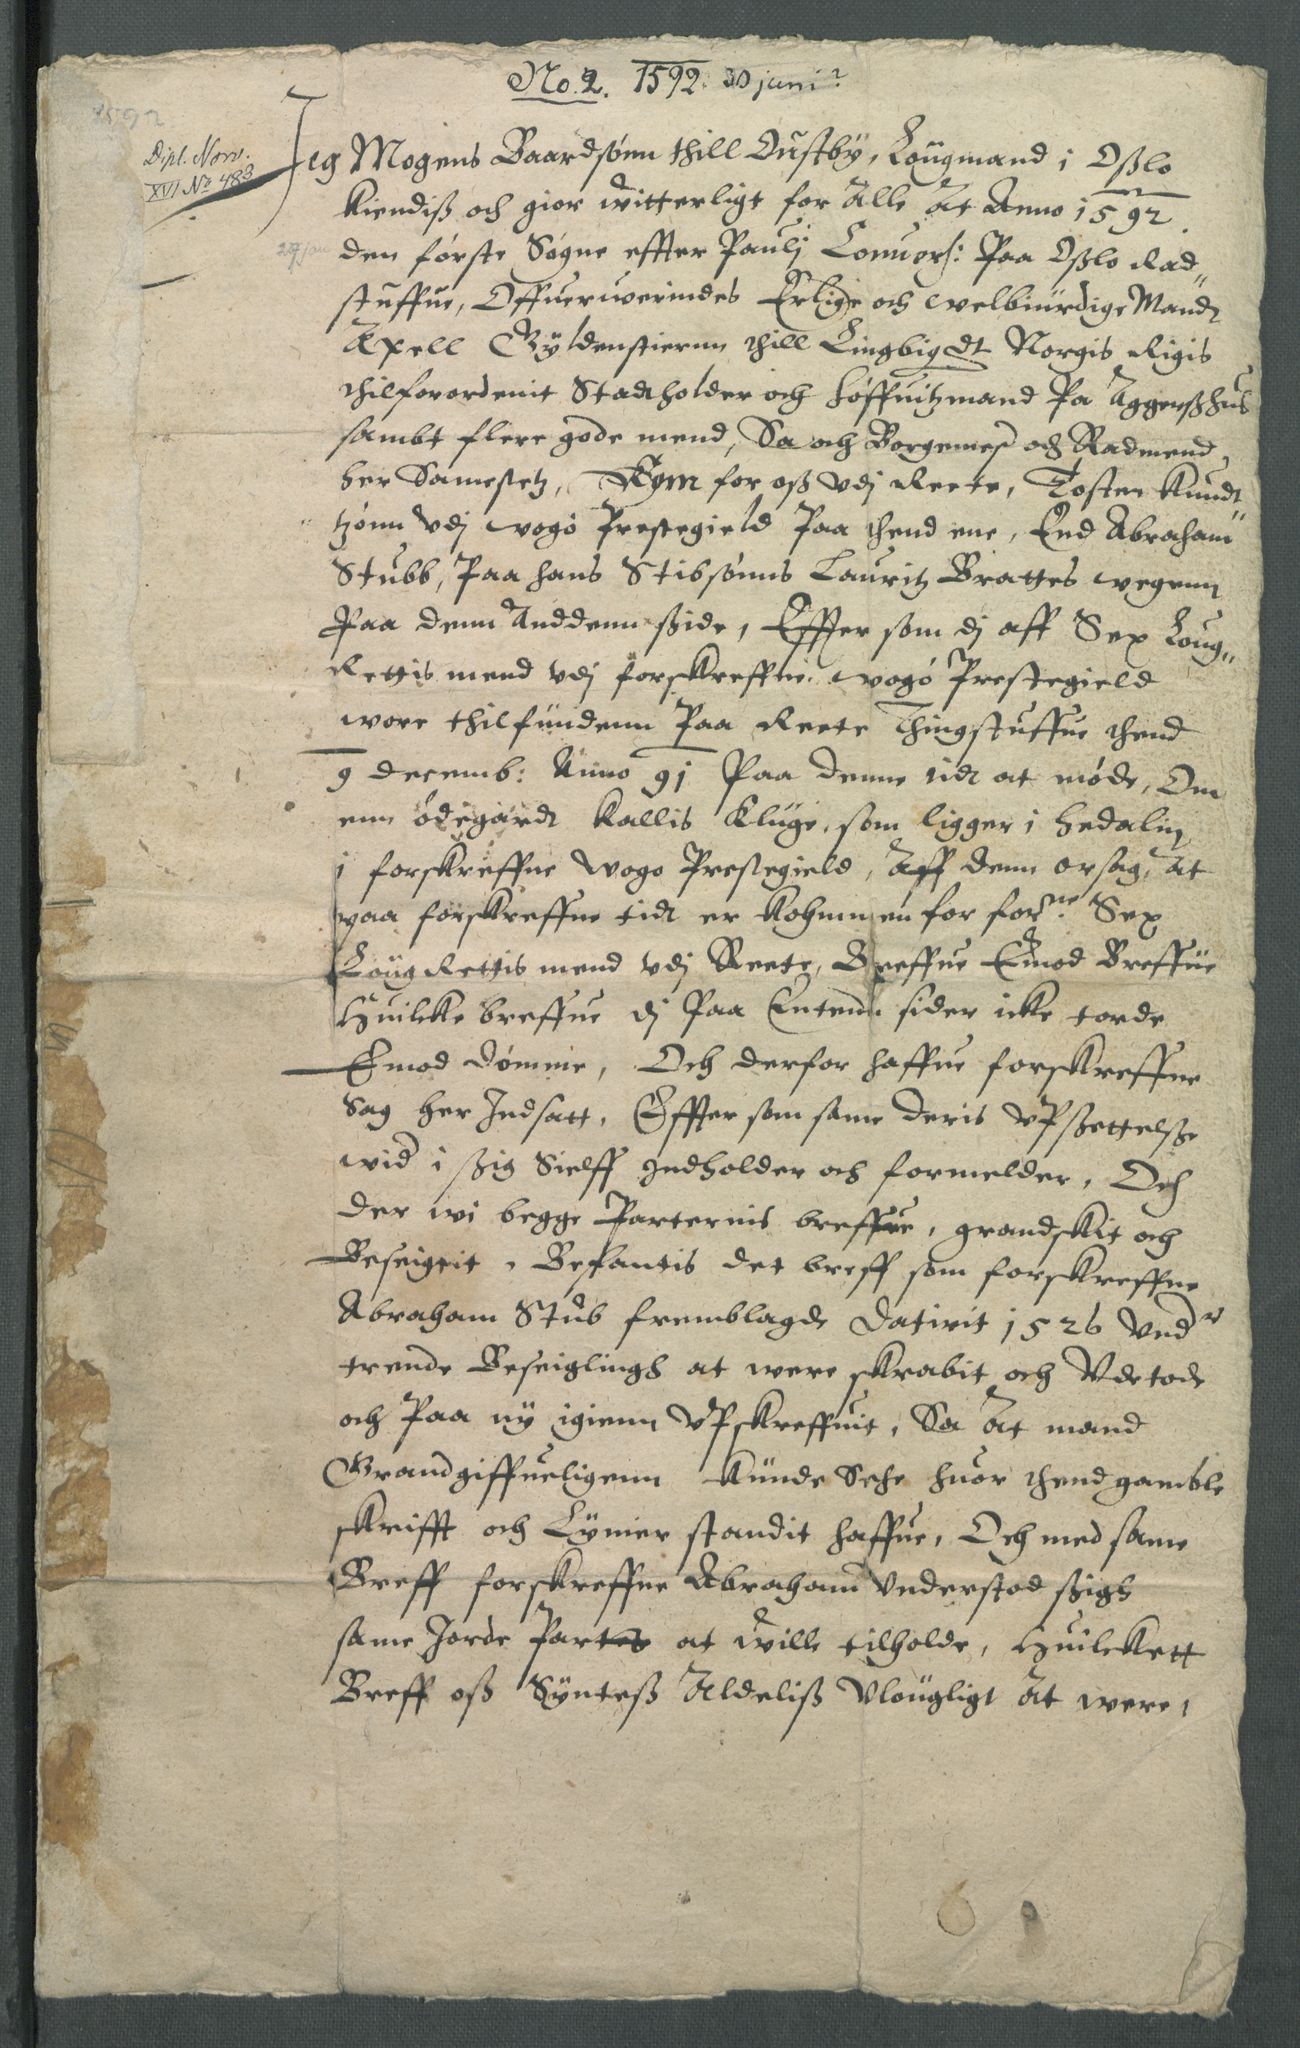 No. 2. 1592. 30 juni?
1592
Dipl. Norv.
XVI No 483
Jeg Mogens Baardsønn thill Oustby, Lougmand i Oßlo
kiendiß och giør witterligt for Alle At Anno 1592.
den første Søgne effter Paulj Conuers: Paa Oßlo Rad„
stuffue, Offueruoerindes Erlige och welbiurdige Mandt
Axell Gyldenstiernn thill Lingbigdt Norgis Rigis
thilforordenit Stadtholder och høffuitzmand Pa Aggerßhus
sambt flere gode mend, Sa och Borgemest och Radmend,
her Samestetz, Kom for oß vdj Rette, Tosten knudt
„ tzønn vdj wogø Prestegield Paa thend ene, End Abraham
Stubb, Paa hans Stibsønns Lauritz Brattes wegenn
Paa denn Anddenn ßide, Effter som dj aff Sex Loug„
Rettis mend vdj forskreffne wogø Prestegield
wore thilfundenn Paa Rette Thingstuffue thend
9 decemb: Anno 91 Paa denne tidt at møde, Om
enn ødegardt kallis kluge, som ligger i hedalin
i forskreffne wogø Prestegield, Aff denn orsag, At
paa forskreffne tidt er kohmmen for forne Sex
Lougrettis mend vdj Rette, Breffue Emod Breffue
Huilcke breffue dj Paa Entenn sider icke torde
Emod dømme, Och derfor haffue forskreffne
Sag her Indsatt, Effter som same deris vPßettelße
wid i ßig Sielff Indholder och formelder, Och
der wi begge Parternis breffue, grandskit och
Beseigtit, Befantis det breff som forskreffne
Abraham Stub fremblagde Datirit 1526 vndr
trende Beseiglingh at were skrabit och Vdetode
och Paa ny igienn vPskreffuit, Sa At mand
Grandgiffueligenn kunde Sehe huor thend gamble
skrifft och Lynier standit haffue, Och med same
Breff forskreffne Abraham Vnderstod ßigh
same Jorde Partes at wille tilholde, Huilckett
Breff oß Sÿnteß Aldeliß Vlougligt At were,